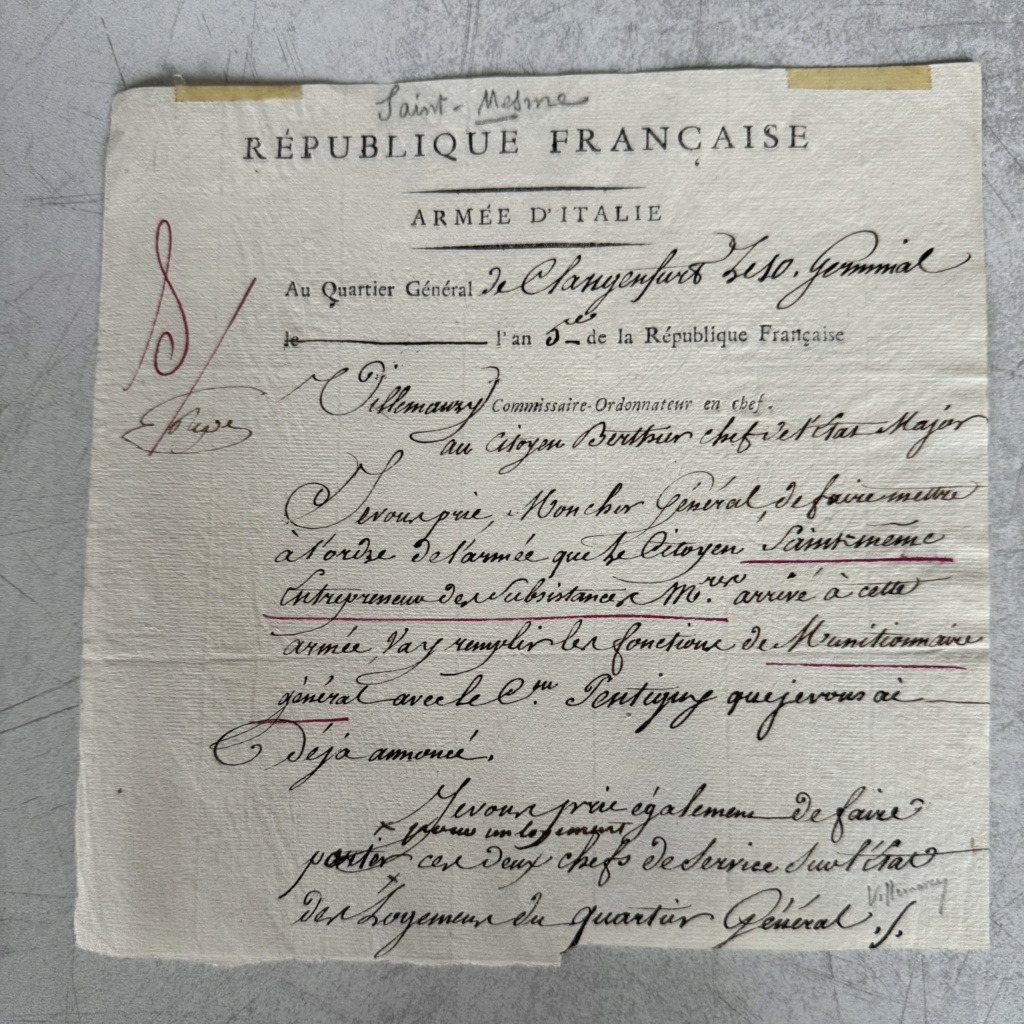 Saint-Mesme
RÉPUBLIQUE FRANÇAISE
ARMÉE D'ITALIE
Au Quartier Général de Clangenfurt Le 10. Germinal
le l'an 5e de la République Française
Villemanzy Commissaire-Ordonnateur en chef.
au Citoyen Berthier chef de l'Etat Major
Je vous prie, Mon cher Général, de faire mettre
à l'ordre de l'armée que le Citoyen Saint-même
Entrepreneur des Subsistances M.res arrivé à cette
armée, Va y remplir les fonctions de Munitionnaire
général avec le C.en Pentigny que je vous ai
Déjà annoncé.
Je vous prie également de faire
x pour un logement
porter x ces deux chefs de Service Sur l'Etat
des Logemens du quartier Général ./.
Villemanzy